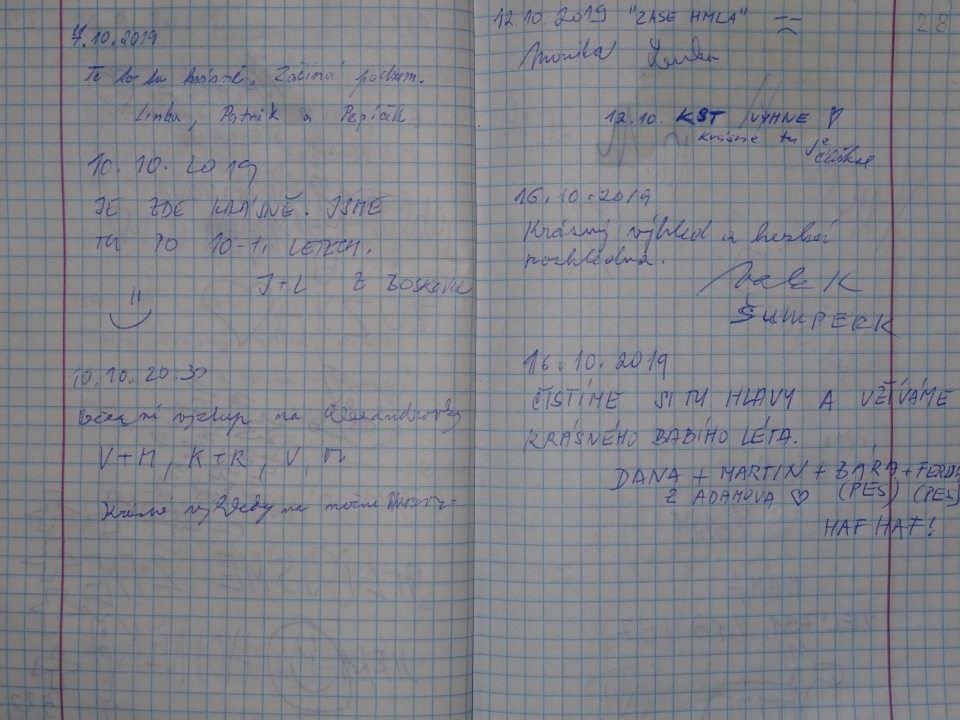 7.10.2019
Začíná podzim.
Lenka, Patrik a Pepíček
10.10.2019
JE ZDE KRÁSNĚ. JSME
TU PO 10-11 LETECH.
J+L Z BOSKOVIC
10.10. 20:30
Večerní výstup na Alexandrovku
V+M, K+R, V, M
Krásné výhledy na noční
12.10.2019 "ZASE HMLA"
Monika Lenka
28
12.10. KST VYHNE
krásne tu je
16.10.2019
Krásný výhled a hezká
rozhledna.
ŠUMPERK
16.10.2019
ČISTÍME SI TU HLAVY A UŽÍVÁME
KRÁSNÉHO BABÍHO LÉTA.
DANA + MARTIN + BÁRA + FERDA
Z ADAMOVA ♡ (PES) (PES)
HAF HAF!